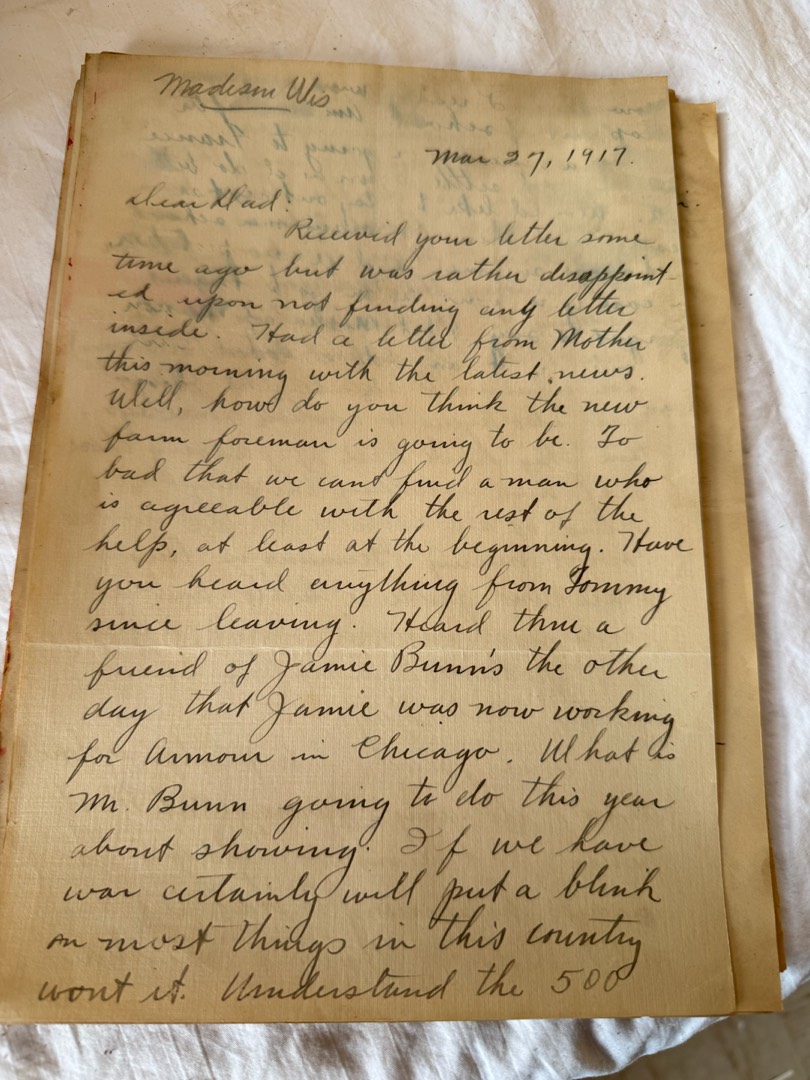 Madison Wis
Mar 27, 1917.
Dear Dad:
Received your letter some
time ago but was rather disappoint-
ed upon not finding any letter
inside. Had a letter from Mother
this morning with the latest news.
Well, how do you think the new
farm foreman is going to be. To
bad that we cant find a man who
is agreeable with the rest of the
help, at least at the beginning. Have
you heard anything from Tommy
since leaving. Heard thru a
friend of Jamie Bunn's the other
day that Jamie was now working
for Armour in Chicago. What is
Mr. Bunn going to do this year
about showing. If we have
war certainly will put a blink
on most things in this country
wont it. Understand the 500